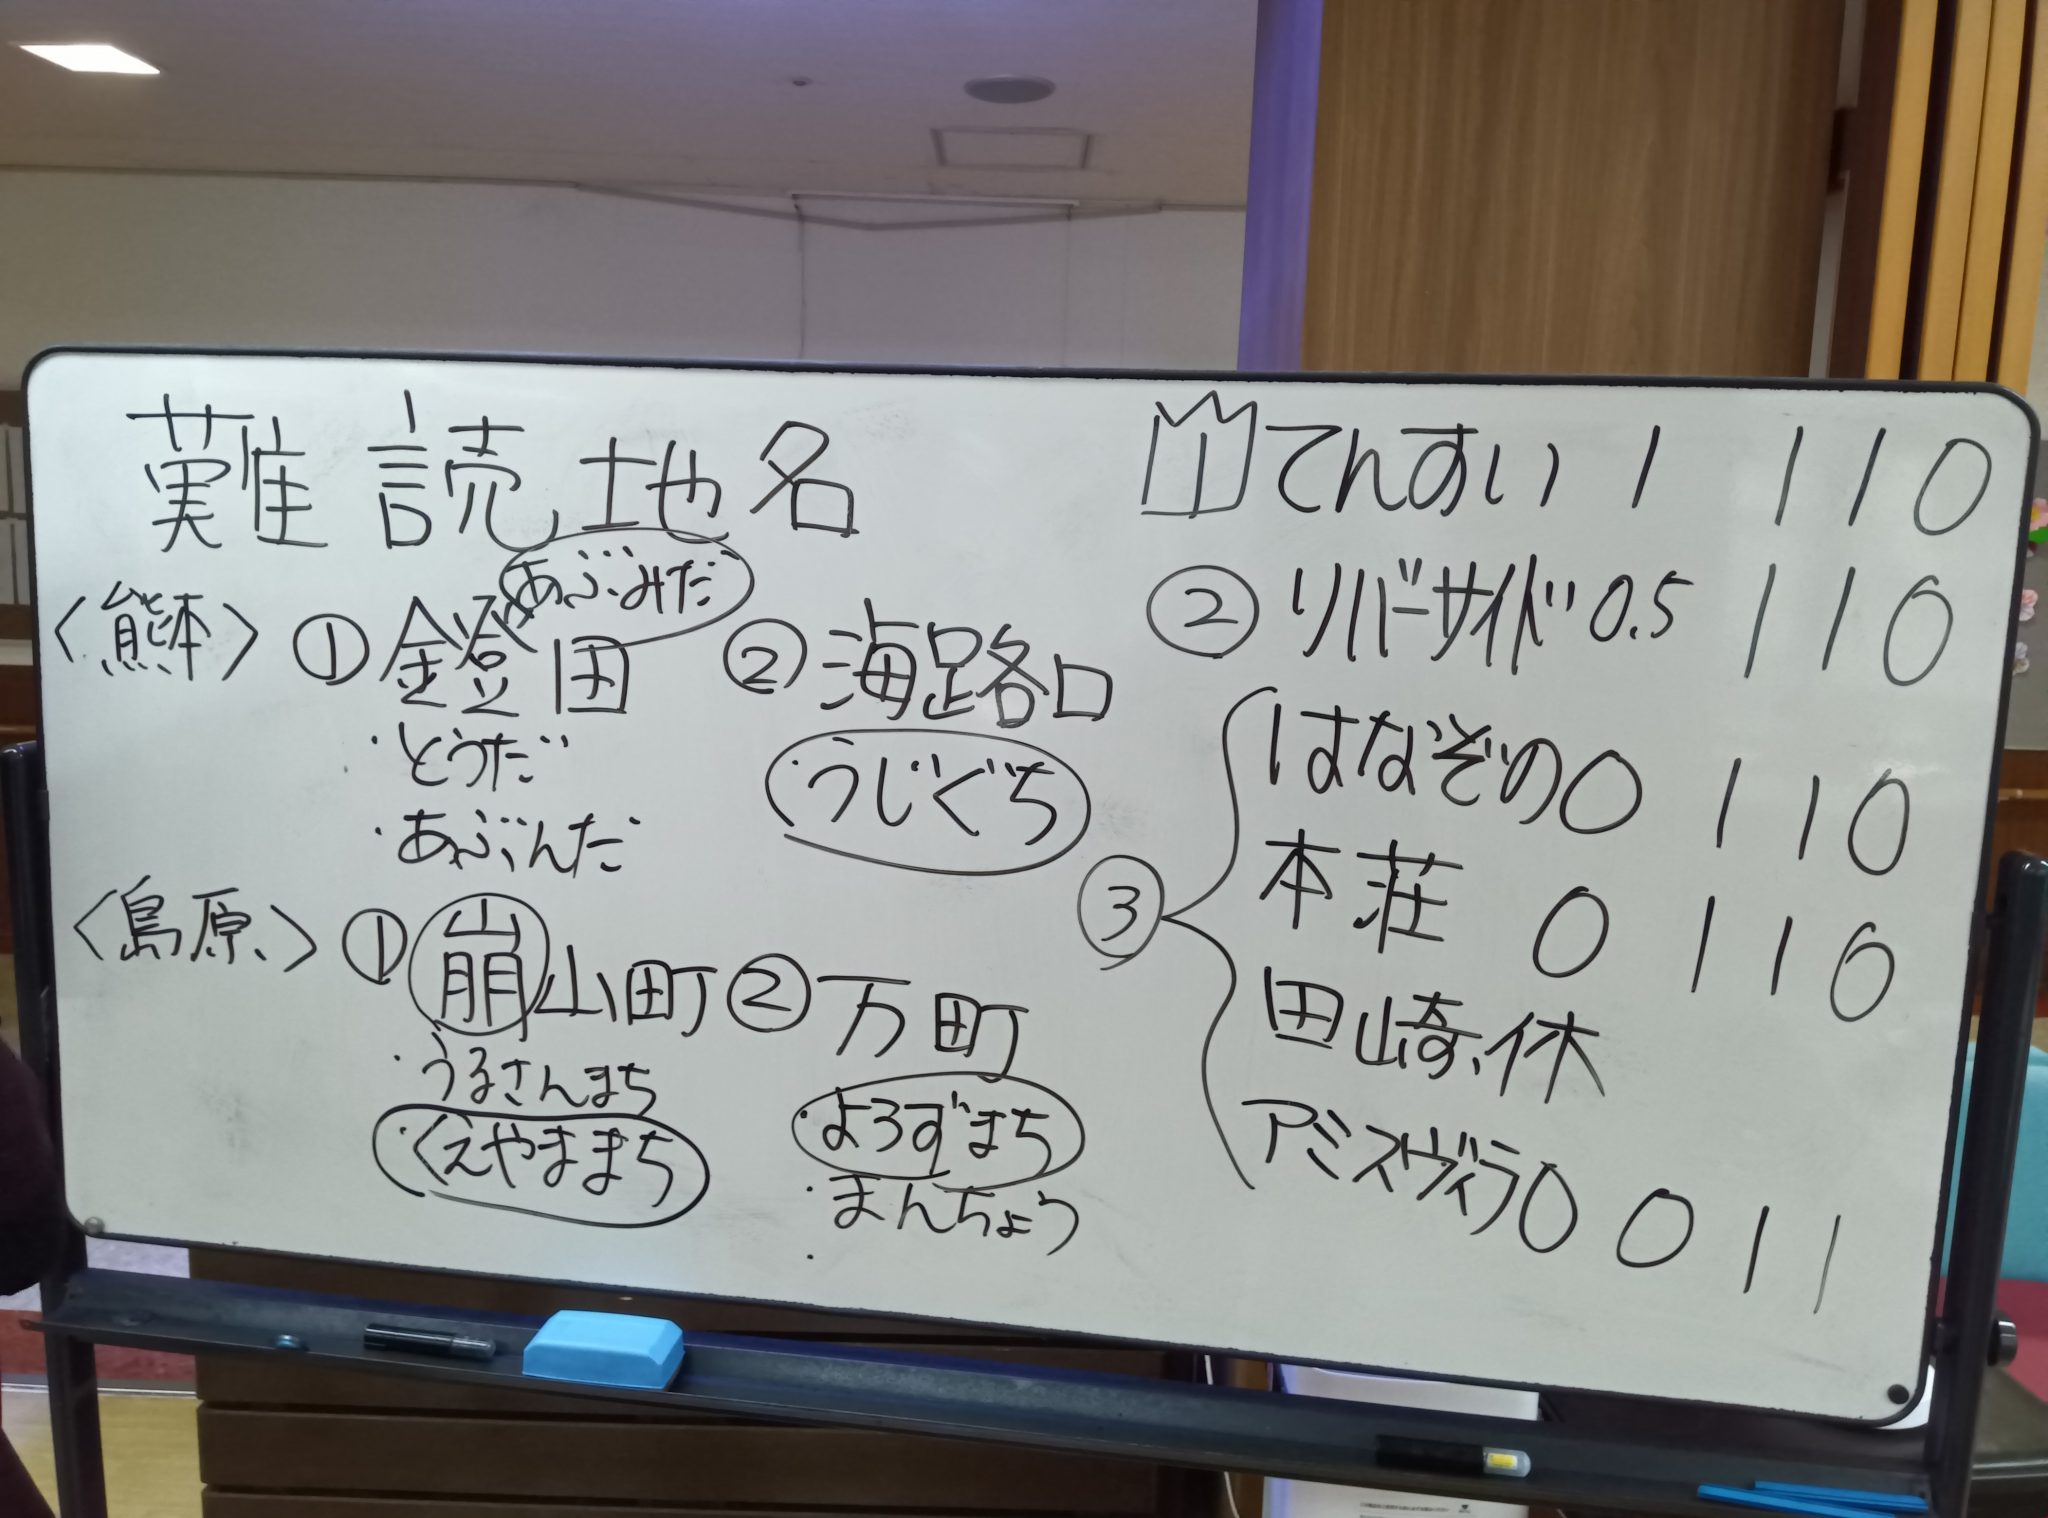 難読地名
<熊本> ①鐙田 ②海路口
あぶみだ
・とうだ
・あぶんだ
・うじぐち
<島原> ①崩山町 ②万町
・うるさんまち
・くえやままち
・よろずまち
・まんちょう
・
1 てんすい 1 1 1 0
② リバーサイド 0.5 1 1 0
③ はなぞの 0 1 1 0
本荘 0 1 1 0
田崎、休
アミスヴィラ 0 0 1 1